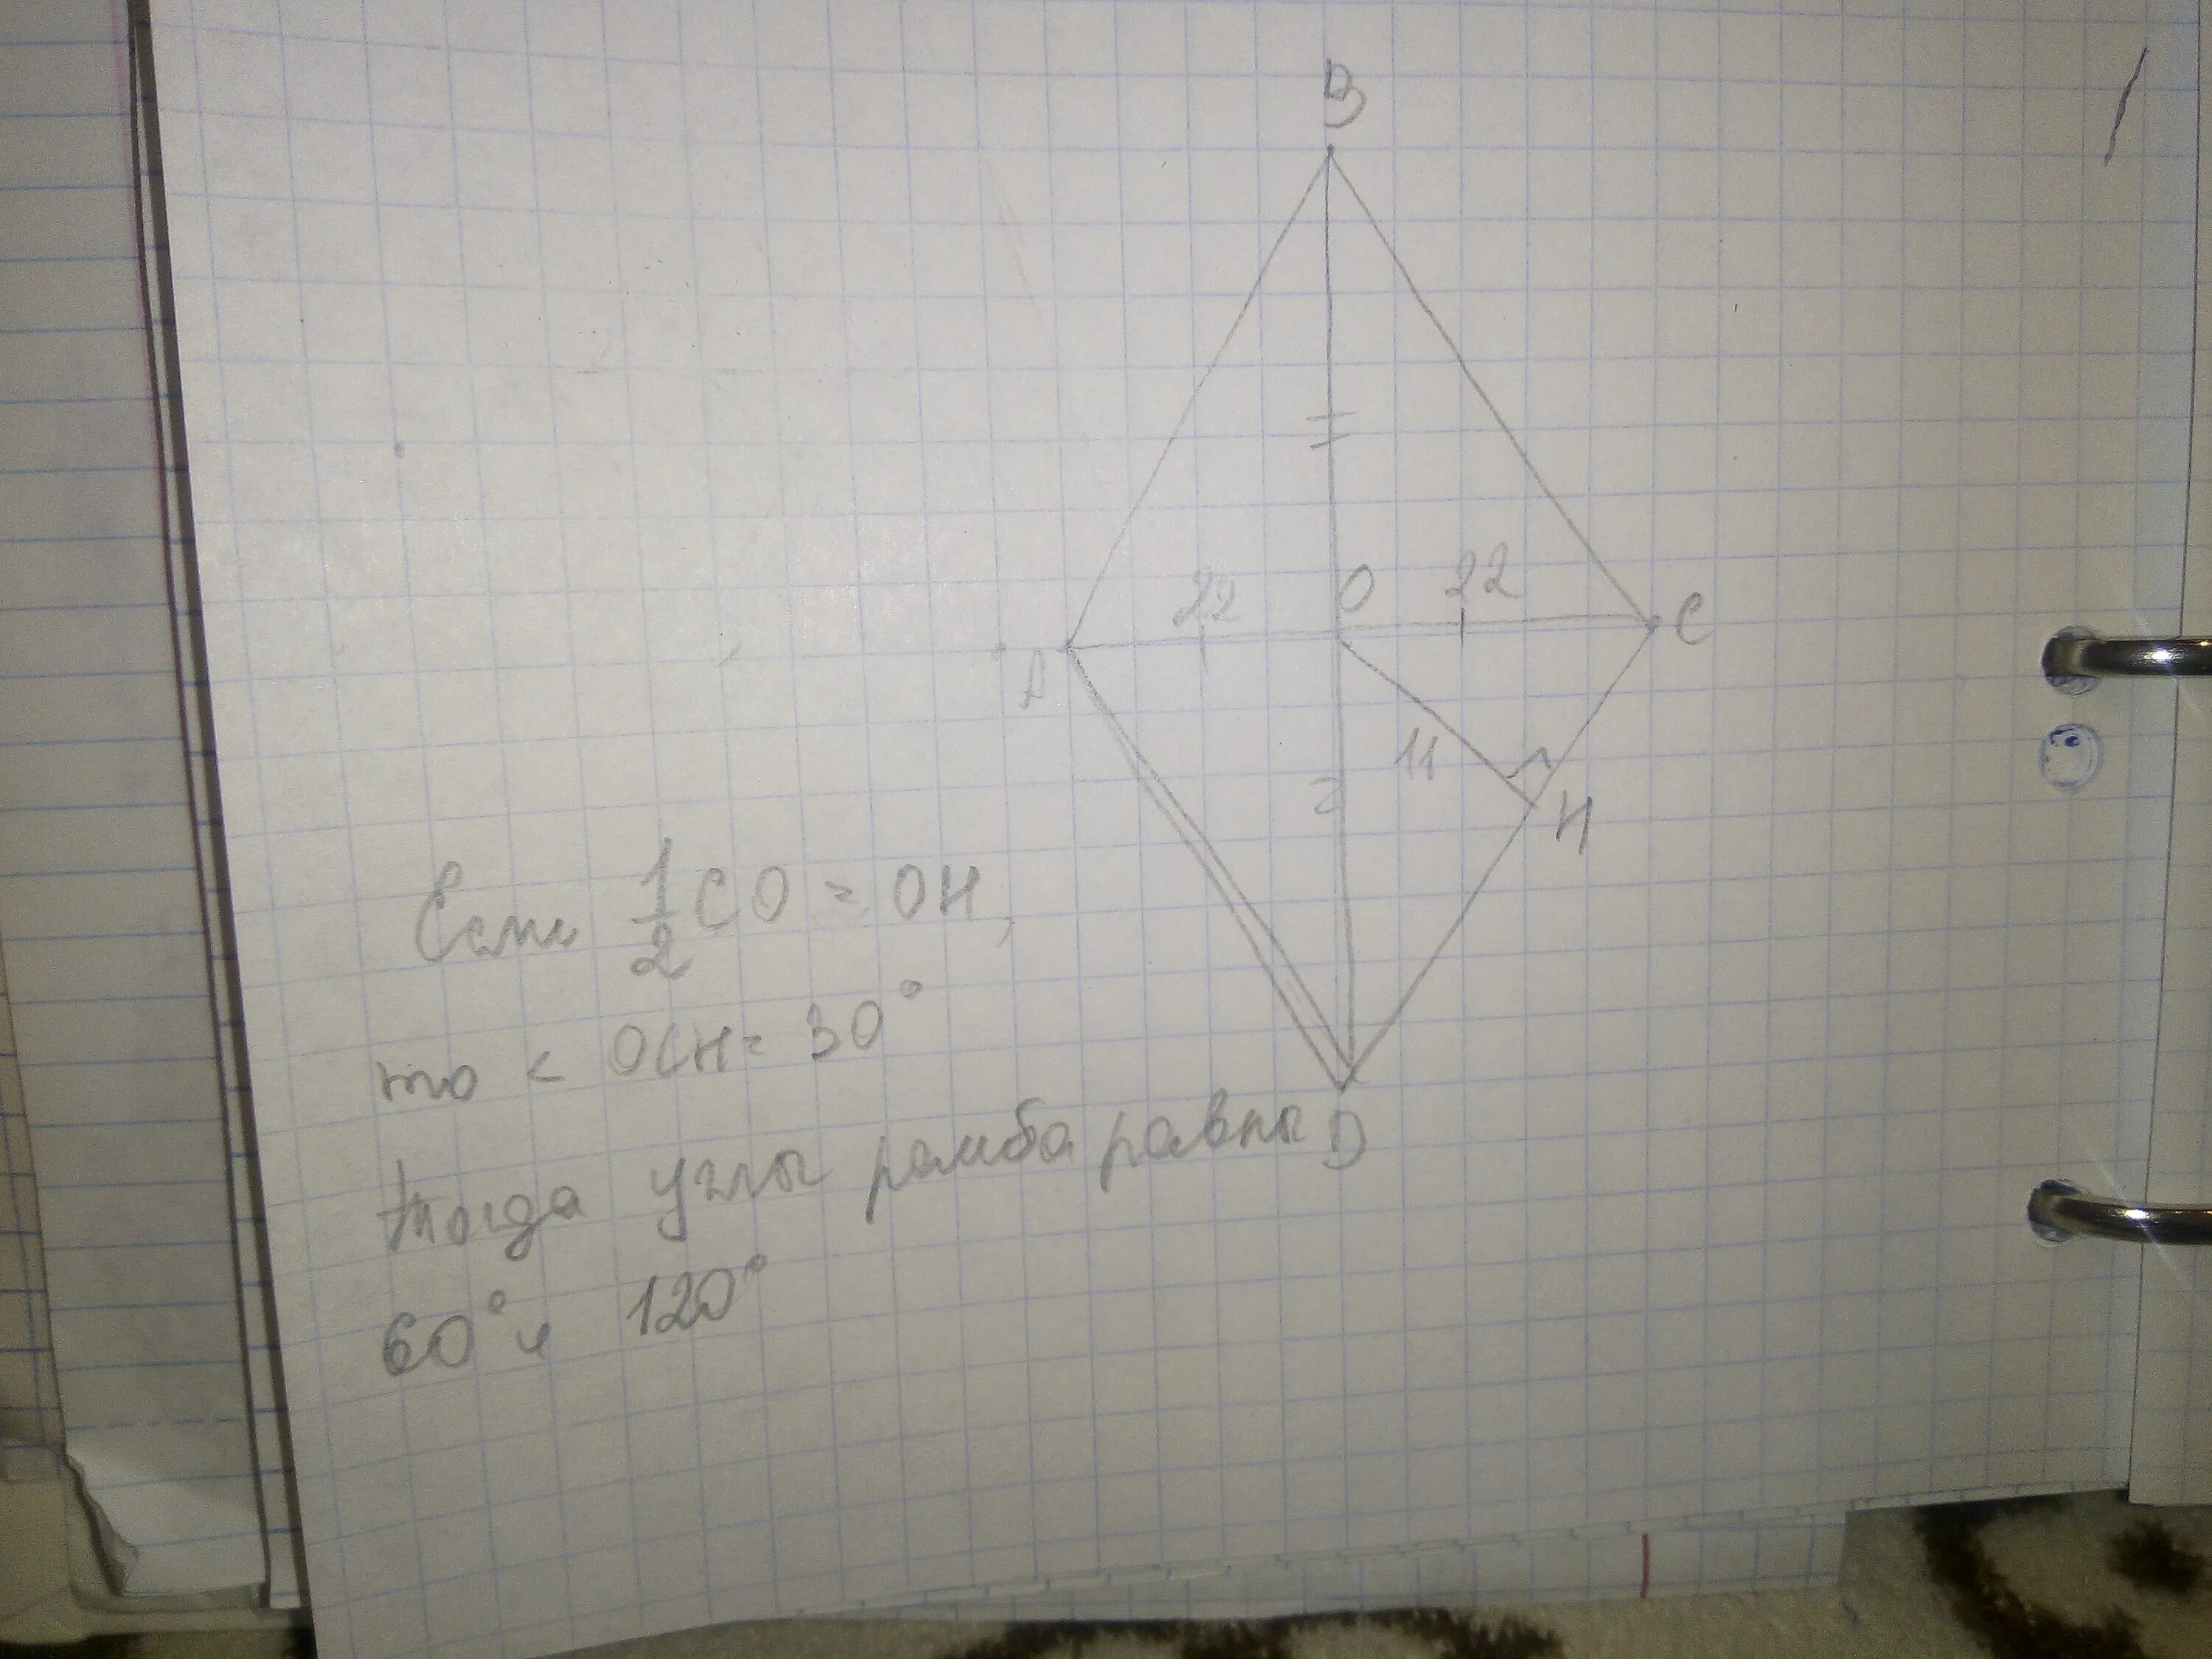 B
22
O
22
C
A
11
H
Если 1/2 CO = OH,
то < OCH = 30°
Тогда углы ромба равны
D
60° и 120°